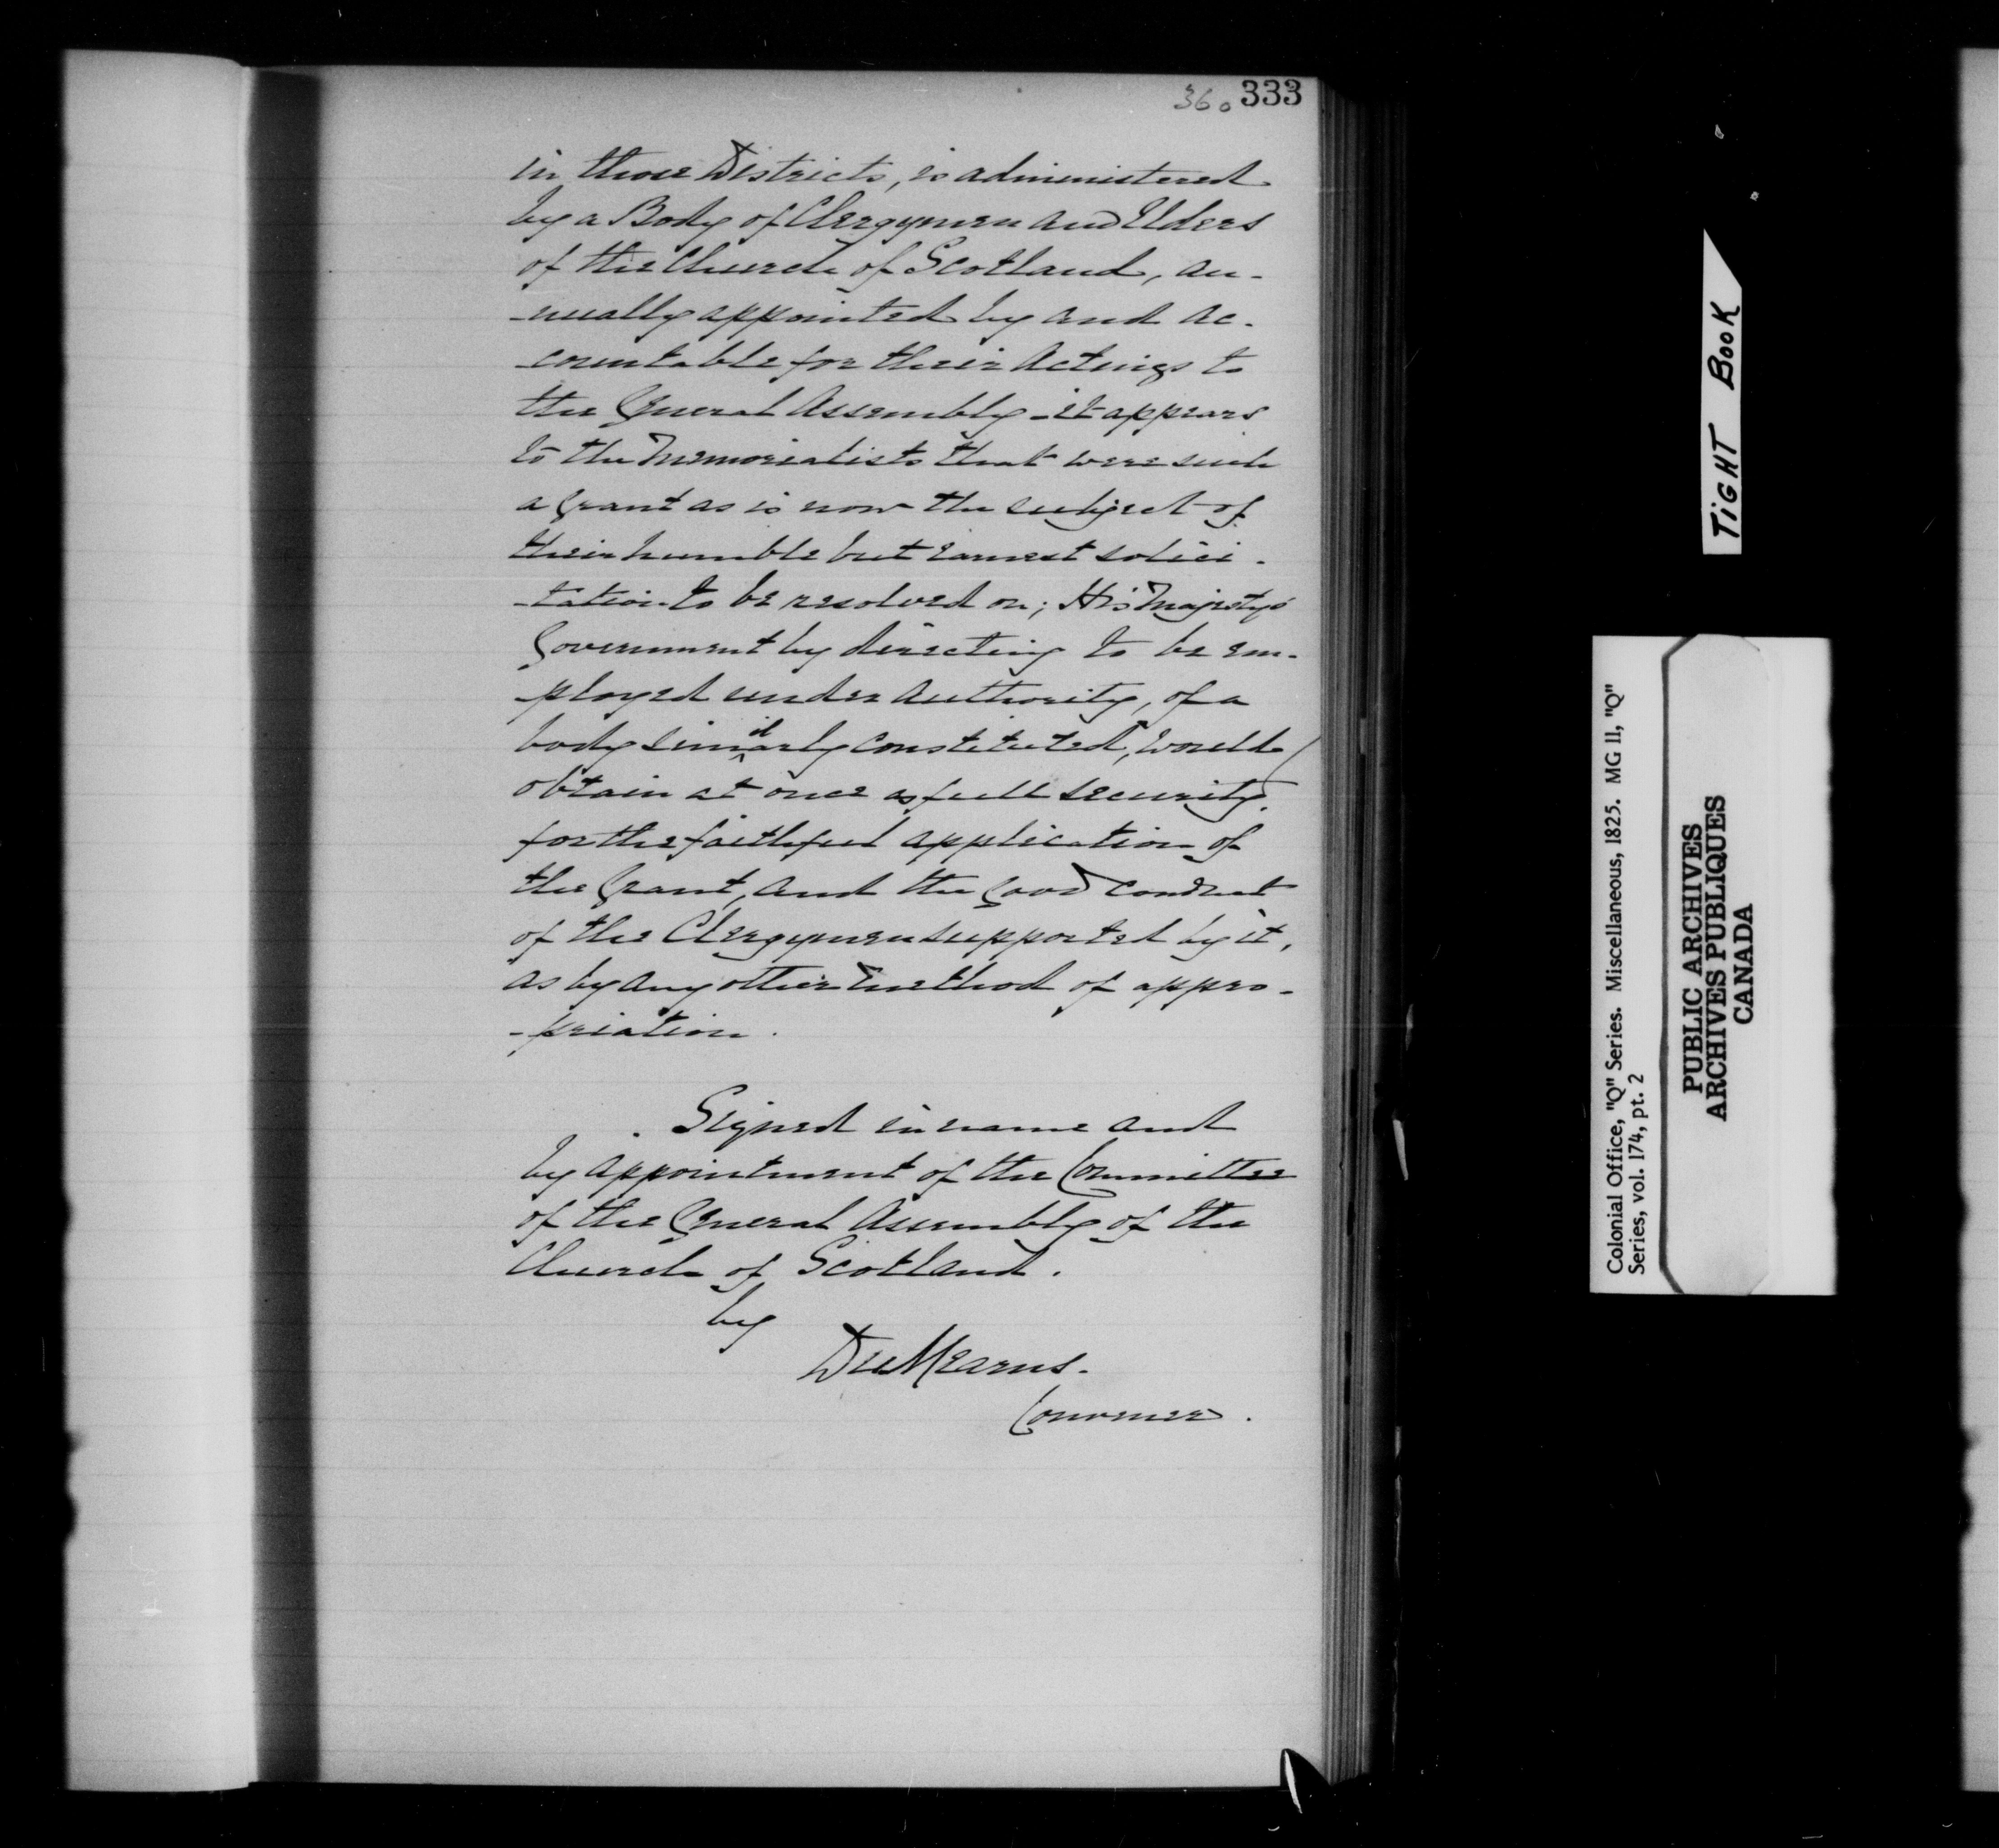 360 333
in those Districts, is administered
by a Body of Clergymen and Elders
of the Church of Scotland, an-
-nually appointed by and ac-
-countable for their Actings to
the General Assembly - it appears
to the Memorialists that were such
a Grant as is now the subject of
their humble but earnest solici-
-tation to be resolved on; His Majestys
Government by directing to be em-
-ployed under Authority, of a
il
body simarly constituted, would
obtain at once as full security
for the faithful application of
the Grant, and the Good conduct
of the Clergymen supported by it,
as by any other method of appro-
-priation.
Signed in name and
by Appointment of the Committee
of the General Assembly of the
Church of Scotland.
by
Mearns.
Convener.
TIGHT BOOK
Colonial Office, "Q" Series. Miscellaneous, 1825. MG 11, "Q"
Series, vol. 174, pt. 2
PUBLIC ARCHIVES
ARCHIVES PUBLIQUES
CANADA